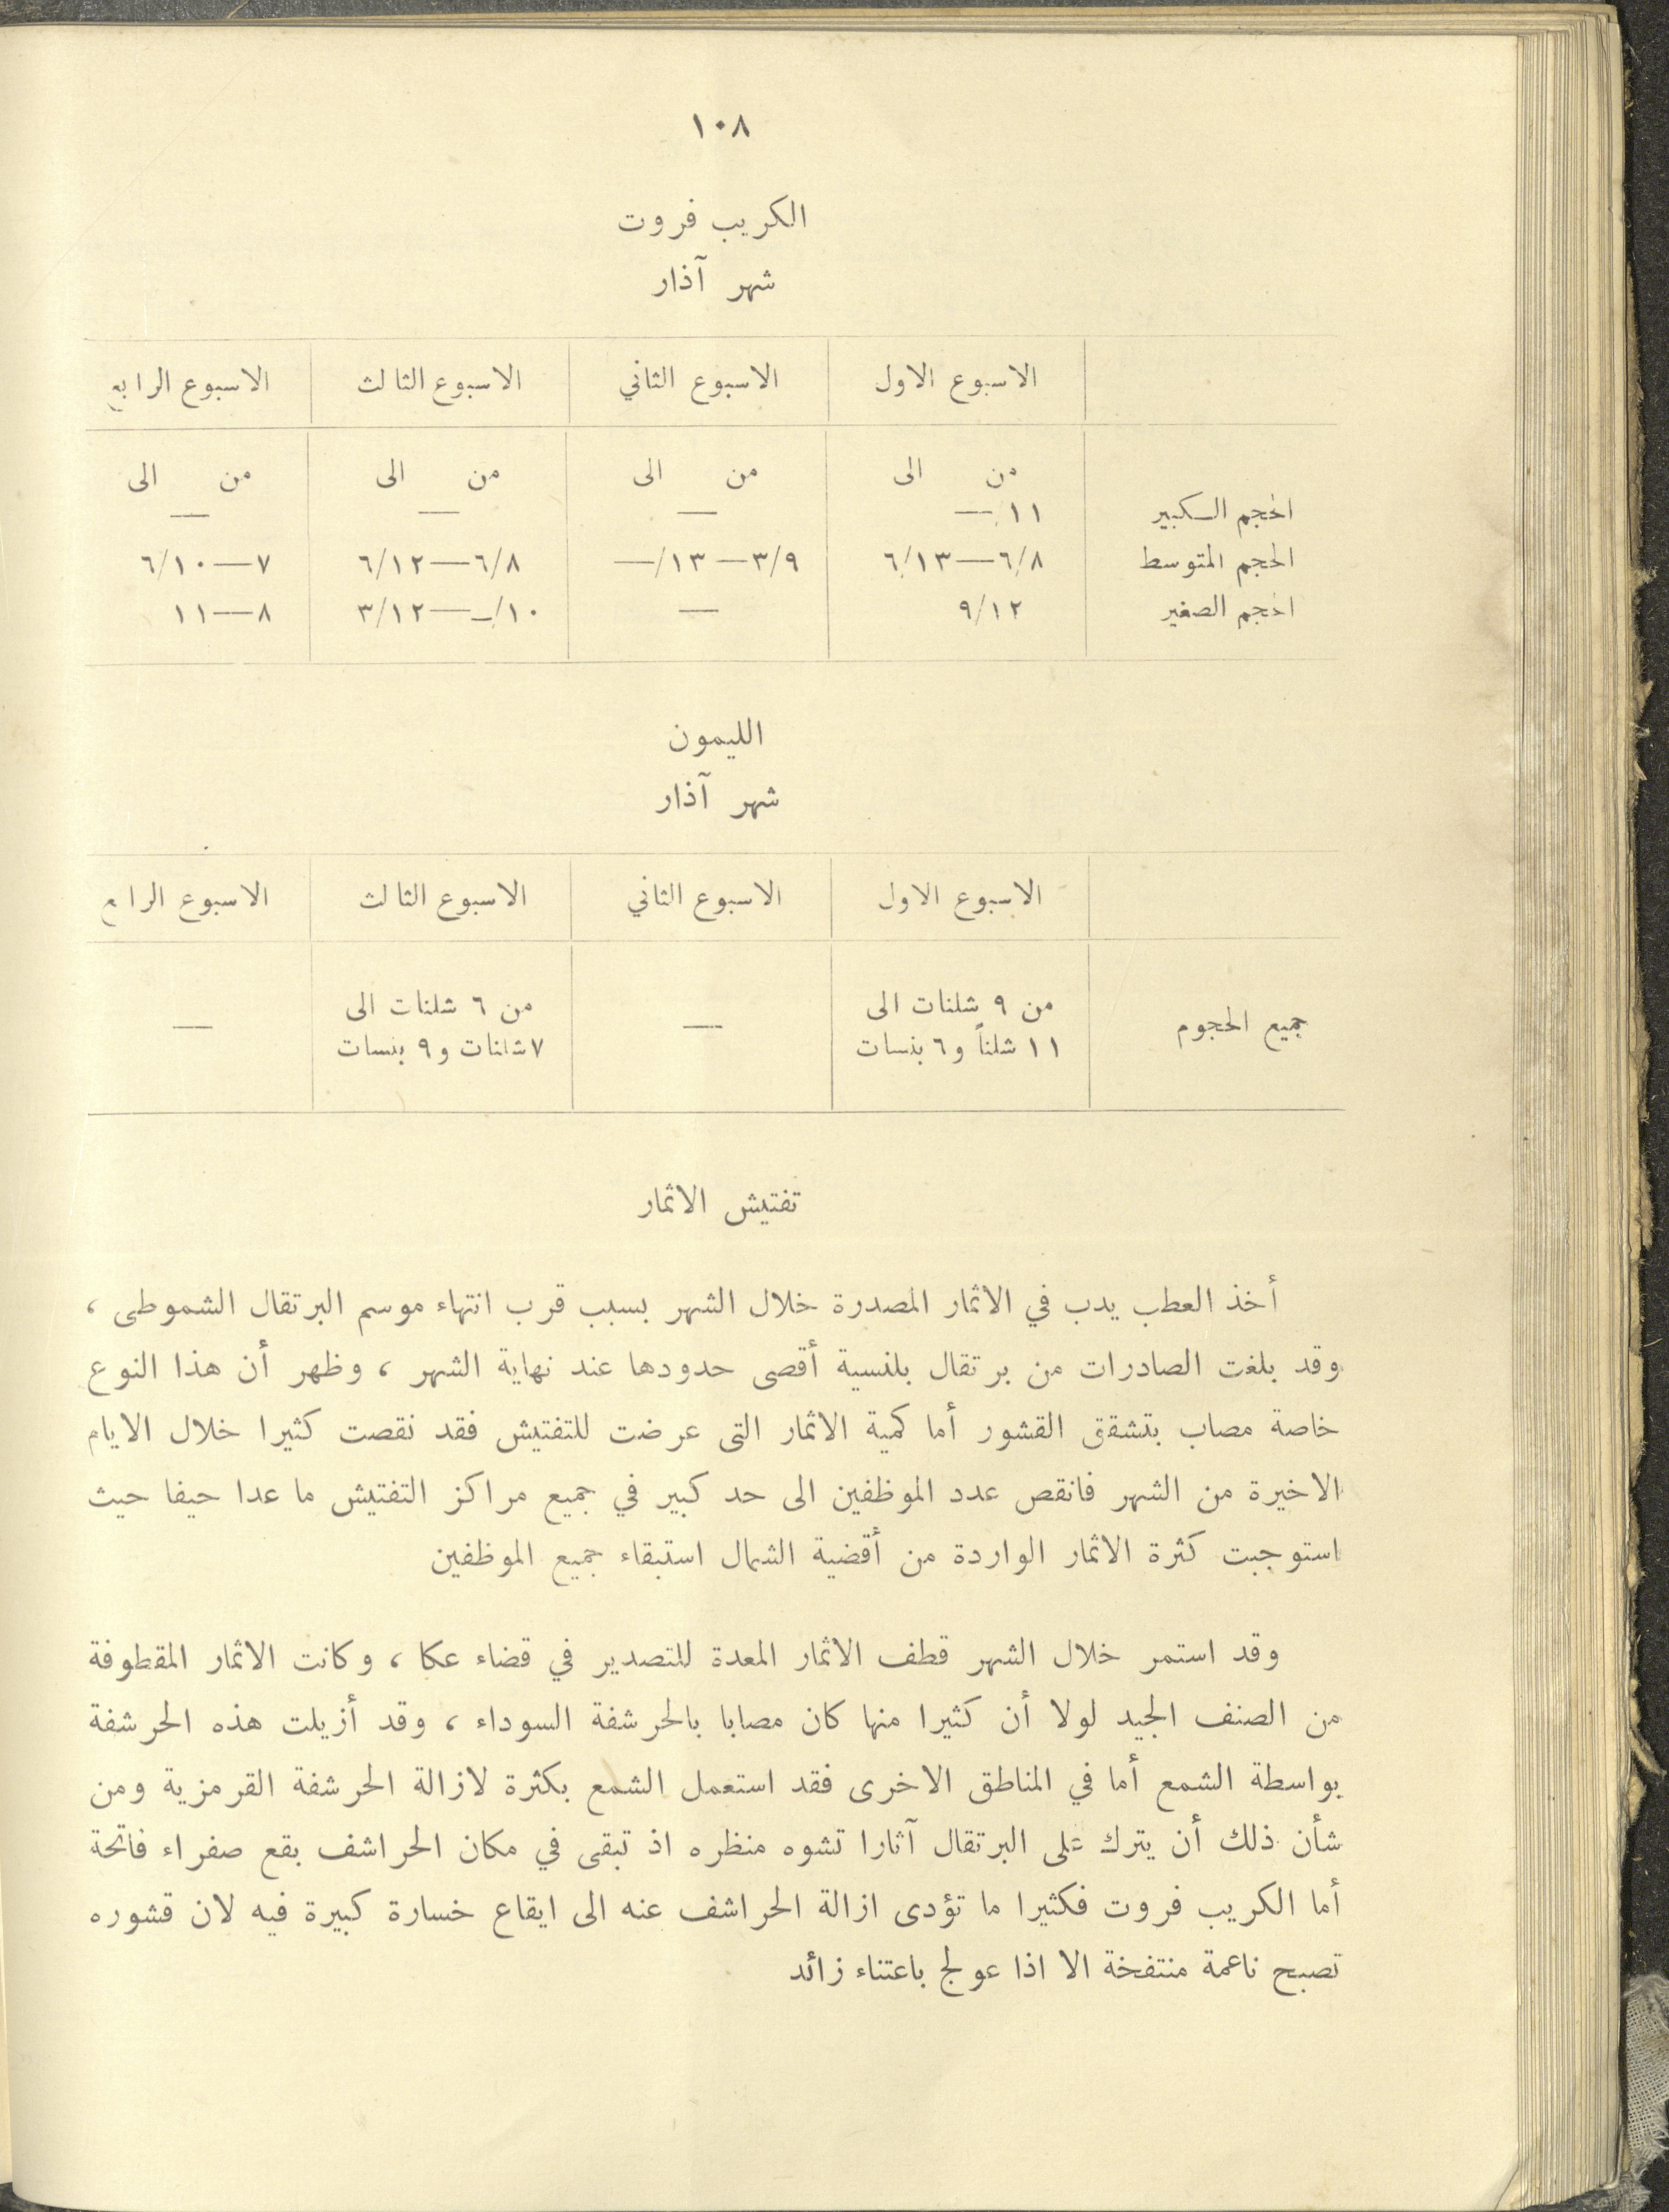 ١٠٨
الكريب فروت
شهر آذار
الاسبوع الاول الاسبوع الثاني الاسبوع الثالث الاسبوع الرابع
من الى من الى من الى من الى
الحجم الكبير ١١ — — — —
الحجم المتوسط ٦/٨—٦/١٣ ٣/٩—١٣/— ٦/٨—٦/١٢ ٧—٦/١٠
الحجم الصغير ٩/١٢ — ١٠/—٣/١٢ ٨—١١
الليمون
شهر آذار
الاسبوع الاول الاسبوع الثاني الاسبوع الثالث الاسبوع الرابع
جميع الحجوم من ٩ شلنات الى — من ٦ شلنات الى —
١١ شلناً و٦ بنسات ٧ شلنات و٩ بنسات
تفتيش الاثمار
أخذ العطب يدب في الاثمار المصدرة خلال الشهر بسبب قرب انتهاء موسم البرتقال الشموطى ،
وقد بلغت الصادرات من برتقال بلنسية أقصى حدودها عند نهاية الشهر ، وظهر أن هذا النوع
خاصة مصاب بتشقق القشور أما كمية الاثمار التى عرضت للتفتيش فقد نقصت كثيرا خلال الايام
الاخيرة من الشهر فانقص عدد الموظفين الى حد كبير في جميع مراكز التفتيش ما عدا حيفا حيث
استوجبت كثرة الاثمار الواردة من أقضية الشمال استبقاء جميع الموظفين
وقد استمر خلال الشهر قطف الاثمار المعدة للتصدير في قضاء عكا ، وكانت الاثمار المقطوفة
من الصنف الجيد لولا أن كثيرا منها كان مصابا بالحرشفة السوداء ، وقد أزيلت هذه الحرشفة
بواسطة الشمع أما في المناطق الاخرى فقد استعمل الشمع بكثرة لازالة الحرشفة القرمزية ومن
شأن ذلك أن يترك على البرتقال آثارا تشوه منظره اذ تبقى في مكان الحراشف بقع صفراء فاتحة
أما الكريب فروت فكثيرا ما تؤدى ازالة الحراشف عنه الى ايقاع خسارة كبيرة فيه لان قشوره
تصبح ناعمة منتفخة الا اذا عولج باعتناء زائد